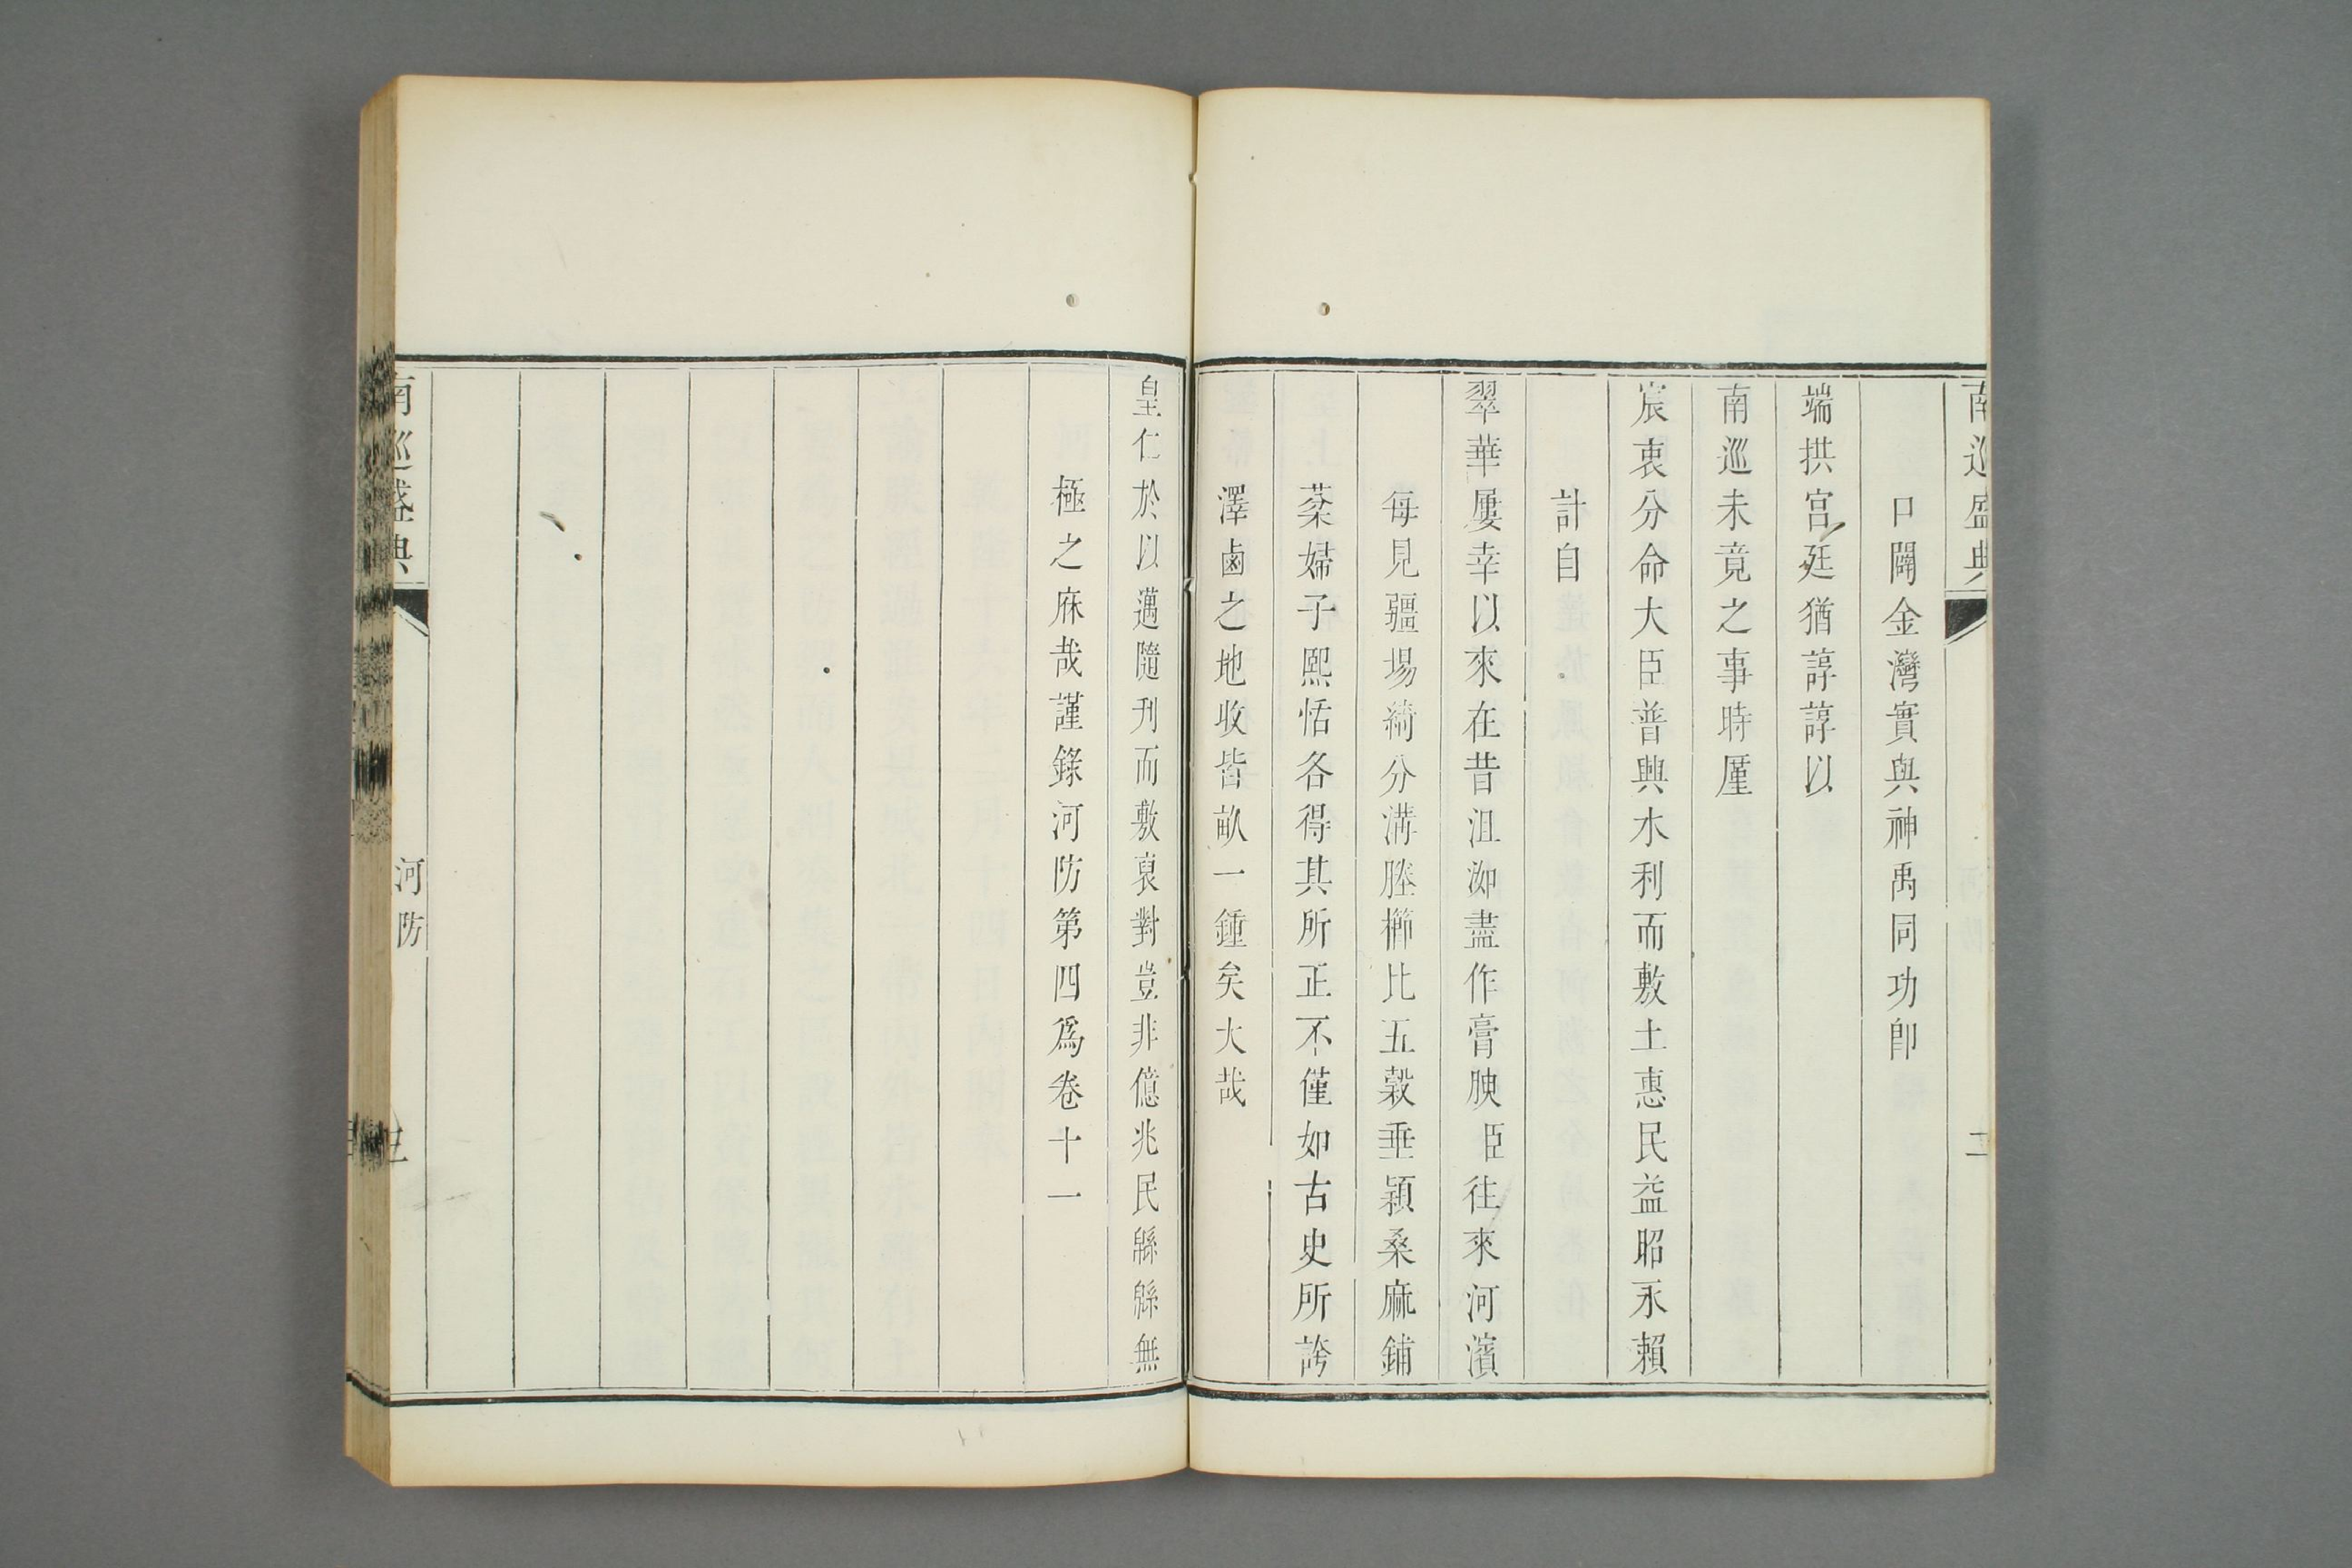 南巡盛典
二
口闢金灣實與神禹同功卽
端拱宮廷猶諄諄以
南巡未竟之事時廑
宸衷分命大臣普興水利而敷土惠民益昭永賴
計自
翠華屢幸以來在昔沮洳盡作膏腴臣往來河濱
每見疆埸綺分溝塍櫛比五穀垂穎桑麻鋪
棻婦子熙恬各得其所正不僅如古史所誇
澤鹵之地收皆畝一鍾矣大哉
皇仁於以邁隨刋而敷裒對豈非億兆民緜緜無
極之庥哉謹錄河防第四爲卷十一
南巡盛典
河防
三